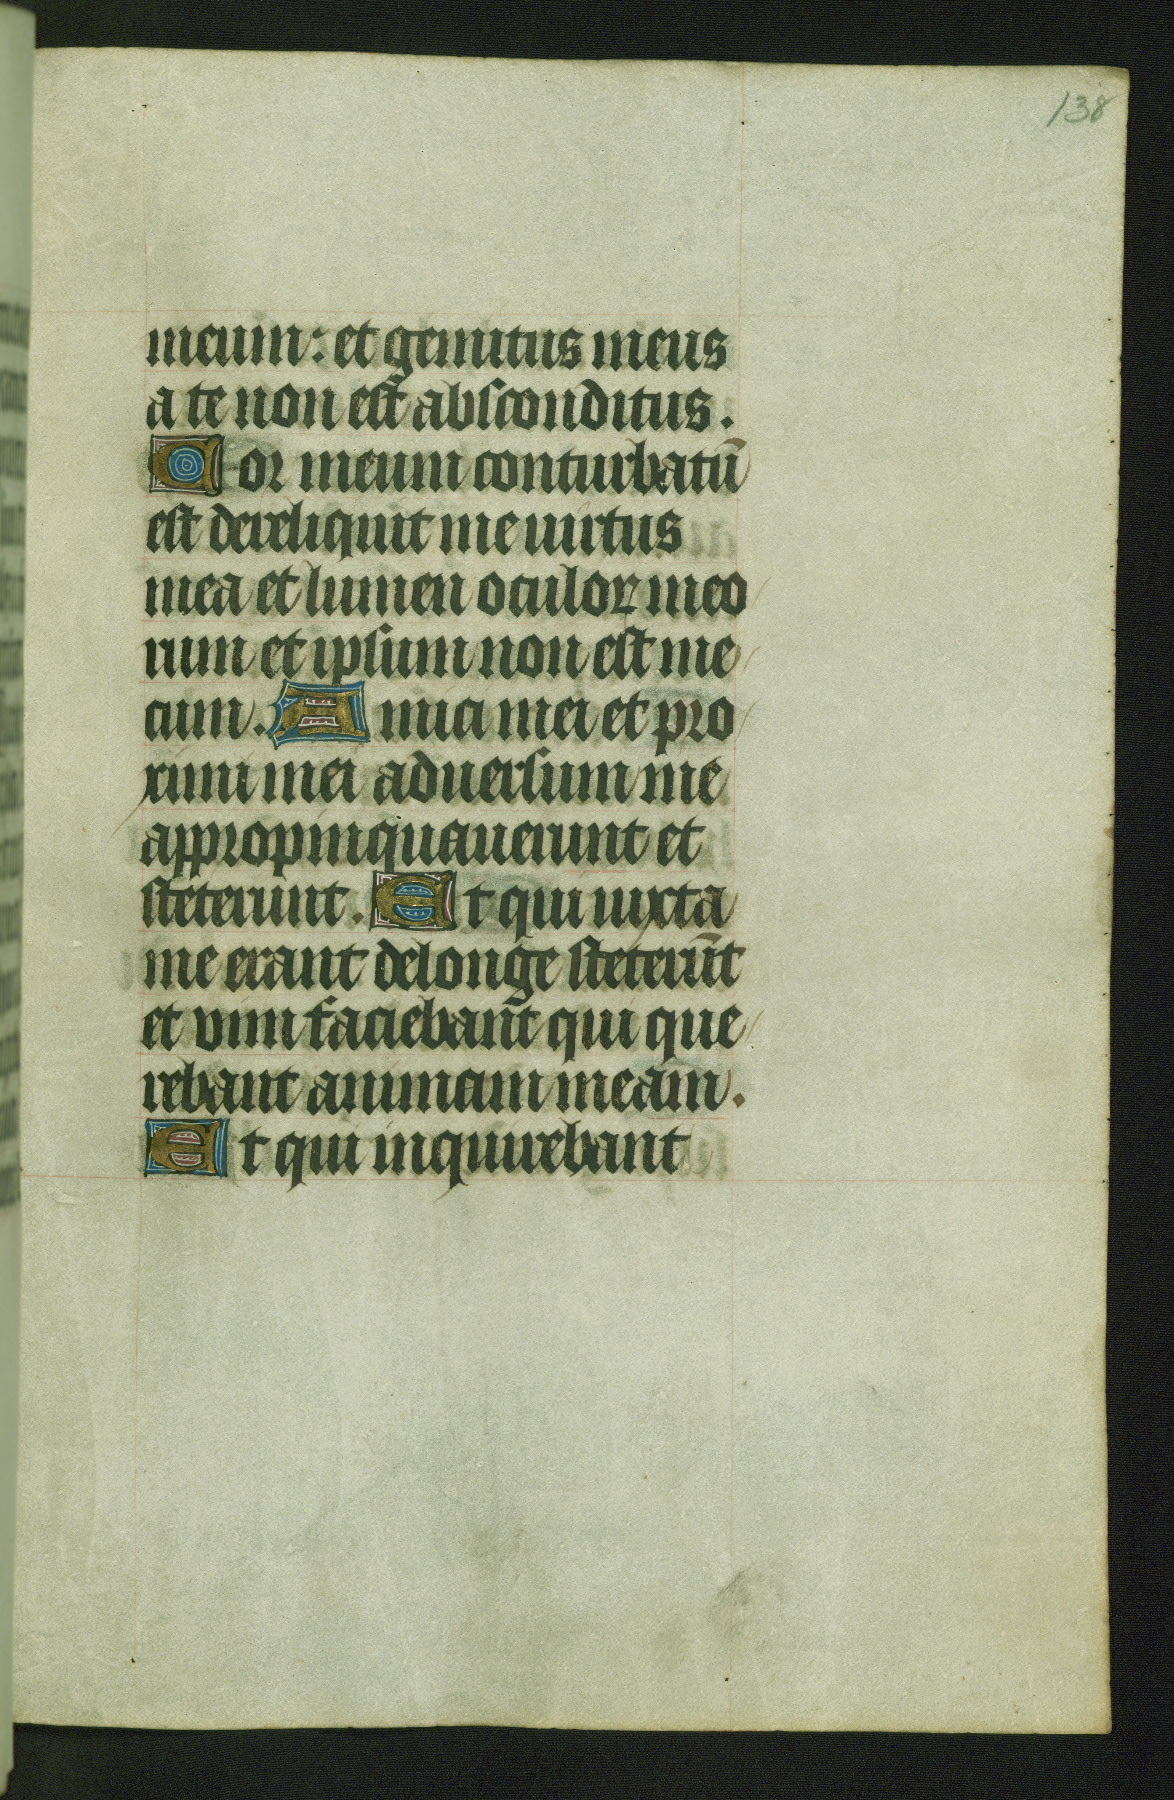 138
meum: et gemitus meus
a te non est absconditus.
Cor meum conturbatū
est dereliquit me uirtus
mea et lumen oculor meo
rum et ipsum non est me
cum. Amici mei et pro
ximi mei aduersum me
appropinquauerunt et
steterunt. Et qui iuxta
me erant de longe steterūt
et vim faciebant qui que
rebant animam meam.
Et qui inquirebant